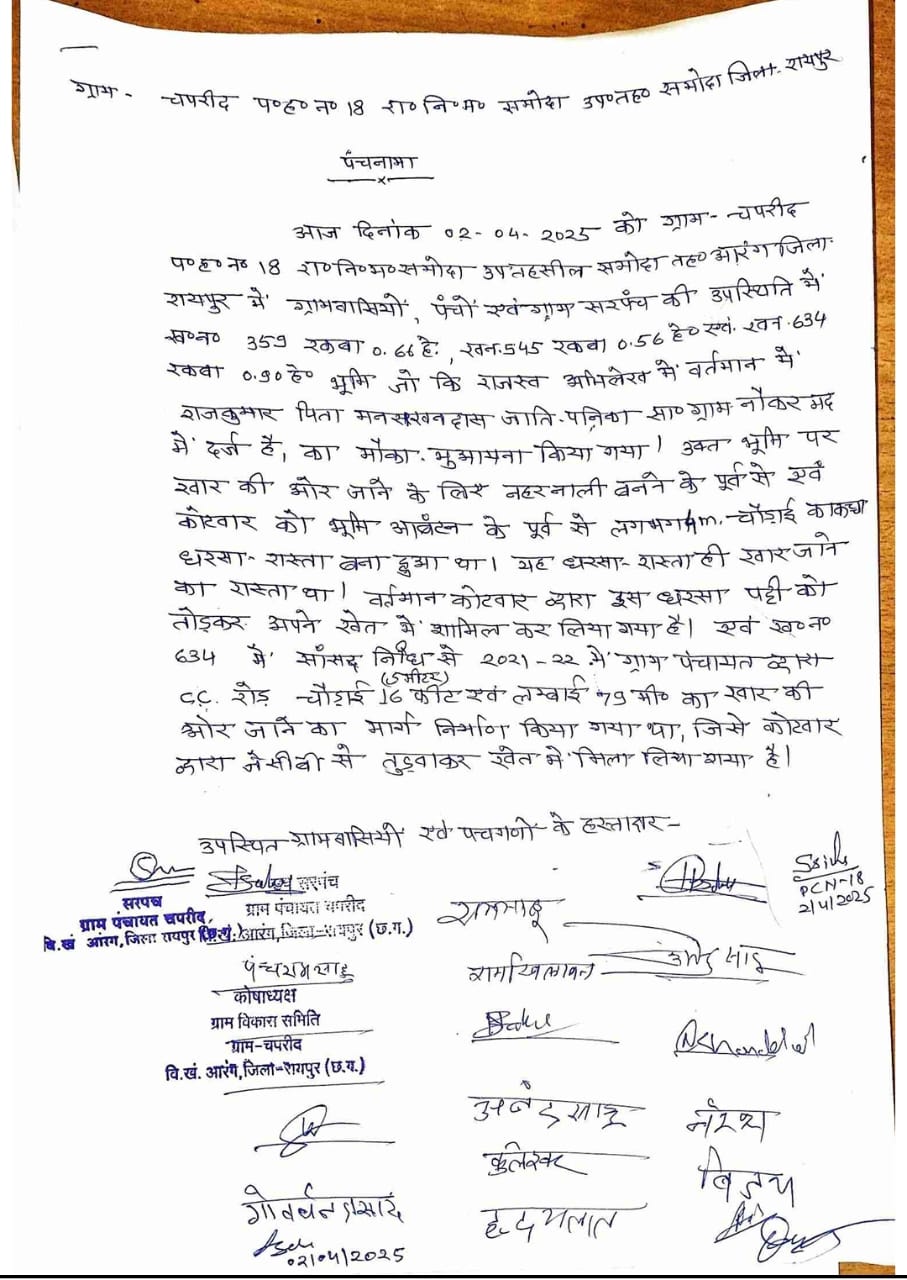 ग्राम - चपरीद प०ह०न० 18 रा०नि०म० समोदा उप०तह० समोदा जिला- रायपुर
पंचनामा
आज दिनांक 02-04-2025 को ग्राम- चपरीद
प०ह०न० 18 रा०नि०म० समोदा उपतहसील समोदा तह० आरंग जिला-
रायपुर में ग्रामवासियों, पंचों एवं ग्राम सरपंच की उपस्थिति में
ख०न० 359 रकबा 0.66 हे., ख.न. 545 रकबा 0.56 हे० एवं ख.न. 634
रकबा 0.90 हे० भूमि जो कि राजस्व अभिलेख में वर्तमान में
राजकुमार पिता मनराखनदास जाति-पनिका सा० ग्राम नौकर मद
में दर्ज है, का मौका मुआयना किया गया। उक्त भूमि पर
खार की ओर जाने के लिए नहरनाली बनने के पूर्व से एवं
कोटवार को भूमि आबंटन के पूर्व से लगभग 4m. चौड़ाई का कच्चा
धरसा-रास्ता बना हुआ था। यह धरसा-रास्ता ही खार जाने
का रास्ता था। वर्तमान कोटवार द्वारा इस धरसा पट्टी को
तोड़कर अपने खेत में शामिल कर लिया गया है। एवं ख०न०
634 में सांसद निधि से 2021-22 में ग्राम पंचायत द्वारा
C.C. रोड चौड़ाई 16 फीट (5 मीटर) एवं लम्बाई 79 मी० का खार की
ओर जाने का मार्ग निर्माण किया गया था, जिसे कोटवार
द्वारा जेसीबी से तुड़वाकर खेत में मिला लिया गया है।
उपस्थित ग्रामवासियों एवं पंचगणों के हस्ताक्षर-
सरपंच
ग्राम पंचायत चपरीद,
वि.खं आरंग, जिला रायपुर (छ.ग.)
सरपंच
ग्राम पंचायत चपरीद
आरंग, जिला-रायपुर (छ.ग.)
PCN-18
2/4/2025
पंचराम साहू
कोषाध्यक्ष
ग्राम विकास समिति
ग्राम-चपरीद
वि.खं. आरंग, जिला-रायपुर (छ.ग.)
रामखिलावन
नरेश
कुलेश्वर
विजय
गोवर्धन प्रसाद
हृदयलाल
02/04/2025